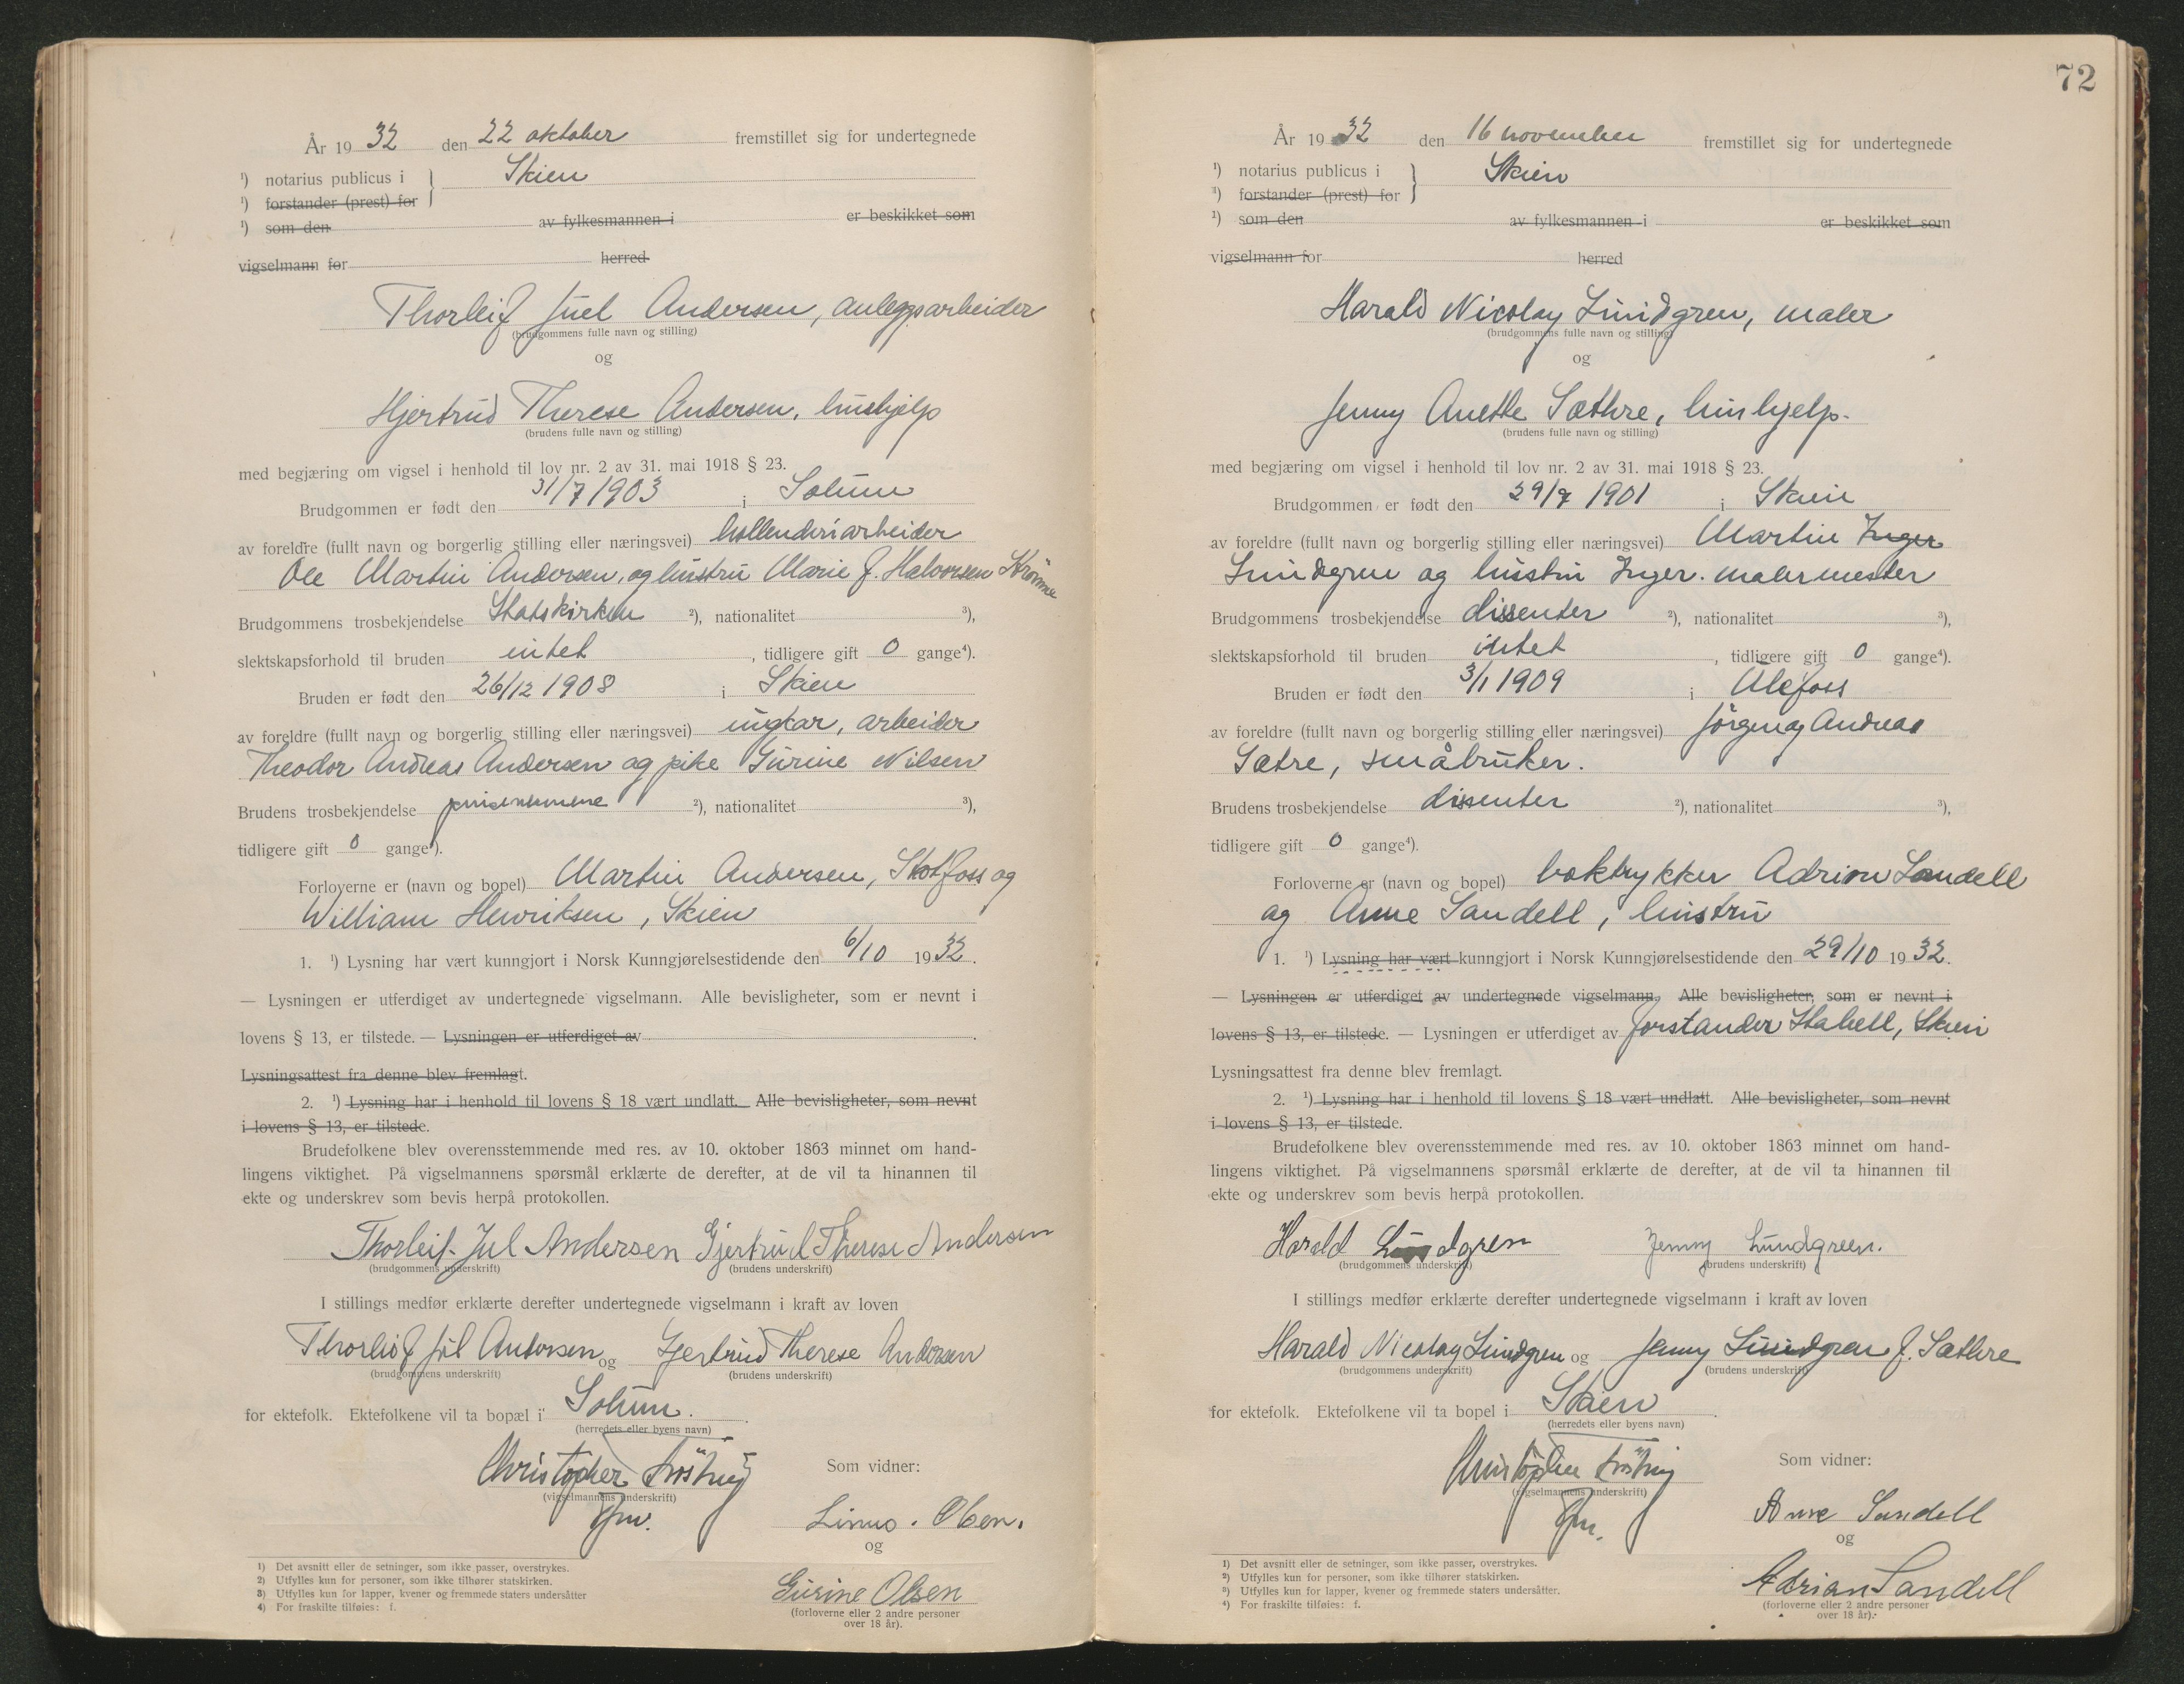 År 19 32 den 22 oktober fremstillet sig for undertegnede
¹) notarius publicus i } Skien
¹) forstander (prest) for
¹) som den av fylkesmannen i er beskikket som
vigselmann for herred
Thorleif Juel Andersen, anleggsarbeider
(brudgommens fulle navn og stilling)
og
Hjertrud Therese Andersen, hushjelp
(brudens fulle navn og stilling)
med begjæring om vigsel i henhold til lov nr. 2 av 31. mai 1918 § 23.
Brudgommen er født den 31/7 1903 i Solum
av foreldre (fullt navn og borgerlig stilling eller næringsvei) hollenderiarbeider
Ole Martin Andersen, og hustru Marie f. Halvorsen Strømme
Brudgommens trosbekjendelse Statskirken ²), nationalitet ³),
slektskapsforhold til bruden intet , tidligere gift 0 gange⁴).
Bruden er født den 26/12 1908 i Skien
av foreldre (fullt navn og borgerlig stilling eller næringsvei) ungkar, arbeider
Theodor Andreas Andersen og pike Gurine Nilsen
Brudens trosbekjendelse pinsevennene ²), nationalitet ³),
tidligere gift 0 gange⁴).
Forloverne er (navn og bopel) Martin Andersen, Skotfoss og
William Henriksen, Skien
1. ¹) Lysning har vært kunngjort i Norsk Kunngjørelsestidende den 6/10 1932.
— Lysningen er utferdiget av undertegnede vigselmann. Alle bevisligheter, som er nevnt i
lovens § 13, er tilstede. — Lysningen er utferdiget av .
Lysningsattest fra denne blev fremlagt.
2. ¹) Lysning har i henhold til lovens § 18 vært undlatt. Alle bevisligheter, som nevnt
i lovens § 13, er tilstede.
Brudefolkene blev overensstemmende med res. av 10. oktober 1863 minnet om hand-
lingens viktighet. På vigselmannens spørsmål erklærte de derefter, at de vil ta hinannen til
ekte og underskrev som bevis herpå protokollen.
Thorleif Jul Andersen Gjertrud Therese Andersen
(brudgommens underskrift) (brudens underskrift)
I stillings medfør erklærte derefter undertegnede vigselmann i kraft av loven
Thorleif Jul Andersen og Gjertrud Therese Andersen
(brudgommens underskrift) (brudens underskrift)
for ektefolk. Ektefolkene vil ta bopæl i Solum.
(herredets eller byens navn)
Christopher Som vidner:
(vigselmannens underskrift)
Linus. Olsen.
og
Gurine Olsen
(forloverne eller 2 andre personer
over 18 år).
1) Det avsnitt eller de setninger, som ikke passer, overstrykes.
2) Utfylles kun for personer, som ikke tilhører statskirken.
3) Utfylles kun for lapper, kvener og fremmede staters undersåtter
4) For fraskilte tilføies: f.
72
År 19 32 den 16 november fremstillet sig for undertegnede
¹) notarius publicus i } Skien
¹) forstander (prest) for
¹) som den av fylkesmannen i er beskikket som
vigselmann for herred
Harald Nicolay Lundgren, maler
(brudgommens fulle navn og stilling)
og
Jenny Anette Sæthre, hushjelp.
(brudens fulle navn og stilling)
med begjæring om vigsel i henhold til lov nr. 2 av 31. mai 1918 § 23.
Brudgommen er født den 29/9 1901 i Skien
av foreldre (fullt navn og borgerlig stilling eller næringsvei) Martin Inger
Lundgren og hustru Inger. malermester
Brudgommens trosbekjendelse dissenter ²), nationalitet ³),
slektskapsforhold til bruden intet , tidligere gift 0 gange⁴).
Bruden er født den 3/1 1909 i Ulefoss
av foreldre (fullt navn og borgerlig stilling eller næringsvei) Jörgen og Andrea
Sætre, småbruker.
Brudens trosbekjendelse dissenter ²), nationalitet ³),
tidligere gift 0 gange⁴).
Forloverne er (navn og bopel) boktrykker Adrian Sandell
og Anne Sandell, hustru
1. ¹) Lysning har vært kunngjort i Norsk Kunngjørelsestidende den 29/10 1932.
— Lysningen er utferdiget av undertegnede vigselmann. Alle bevisligheter, som er nevnt i
lovens § 13, er tilstede. — Lysningen er utferdiget av forstander Stabell, Skien
Lysningsattest fra denne blev fremlagt.
2. ¹) Lysning har i henhold til lovens § 18 vært undlatt. Alle bevisligheter, som nevnt
i lovens § 13, er tilstede.
Brudefolkene blev overensstemmende med res. av 10. oktober 1863 minnet om hand-
lingens viktighet. På vigselmannens spørsmål erklærte de derefter, at de vil ta hinannen til
ekte og underskrev som bevis herpå protokollen.
Harald Lundgren Jenny Lundgreen.
(brudgommens underskrift) (brudens underskrift)
I stillings medfør erklærte derefter undertegnede vigselmann i kraft av loven
Harald Nicolay Lundgren og Jenny Lundgren f. Sæthre
(brudgommens underskrift) (brudens underskrift)
for ektefolk. Ektefolkene vil ta bopel i Skien.
(herredets eller byens navn)
Christopher Som vidner:
(vigselmannens underskrift)
Anne Sandell
og
Adrian Sandell
(forloverne eller 2 andre personer
over 18 år).
1) Det avsnitt eller de setninger, som ikke passer, overstrykes.
2) Utfylles kun for personer, som ikke tilhører statskirken.
3) Utfylles kun for lapper, kvener og fremmede staters undersåtter.
4) For fraskilte tilføies: f.